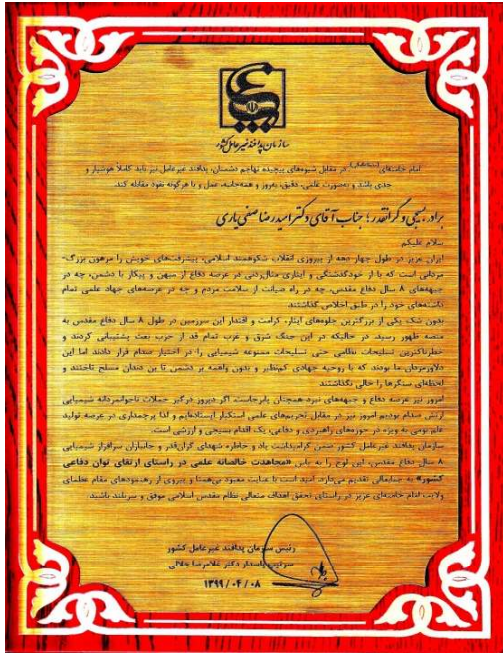 سازمان پدافند غیرعامل کشور
امام خامنه‌ای(مدظله‌العالی): در مقابل شیوه‌های پیچیده تهاجم دشمنان، پدافند غیرعامل نیز باید کاملاً هوشیار و
جدی باشد و به‌صورت علمی، دقیق، به‌روز و همه‌جانبه، عمل و با هرگونه نفوذ مقابله کند.
برادر بسیجی و گرانقدر؛ جناب آقای دکتر امیدرضا صفی‌یاری
سلام علیکم
ایران عزیز در طول چهار دهه از پیروزی انقلاب شکوهمند اسلامی، پیشرفت‌های خویش را مرهون بزرگ-
مردانی است که با از خودگذشتگی و ایثاری مثال‌زدنی در عرصه دفاع از میهن و پیکار با دشمن، چه در
جبهه‌های ۸ سال دفاع مقدس، چه در راه صیانت از سلامت مردم و چه در عرصه‌های جهاد علمی تمام
داشته‌های خود را در طبق اخلاص گذاشتند.
بدون شک یکی از بزرگترین جلوه‌های ایثار، کرامت و اقتدار این سرزمین در طول ۸ سال دفاع مقدس به
منصه ظهور رسید. در حالیکه در این جنگ شرق و غرب تمام قد از حزب بعث پشتیبانی کردند و
خطرناکترین تسلیحات نظامی حتی تسلیحات ممنوعه شیمیایی را در اختیار صدام قرار دادند اما این
دلاورمردان ما بودند که با روحیه جهادی کم‌نظیر و بدون واهمه بر دشمن تا بن دندان مسلح تاختند و
لحظه‌ای سنگرها را خالی نگذاشتند.
امروز نیز عرصه دفاع و جبهه‌های نبرد همچنان پابرجاست. اگر دیروز درگیر حملات ناجوانمردانه شیمیایی
ارتش صدام بودیم امروز نیز در مقابل تحریم‌های علمی استکبار ایستاده‌ایم و لذا پرچمداری در عرصه تولید
علم بومی به ویژه در حوزه‌های راهبردی و دفاعی، یک اقدام بسیجی و ارزشی است.
سازمان پدافند غیرعامل کشور ضمن گرامیداشت یاد و خاطره شهدای گران‌قدر و جانبازان سرافراز شیمیایی
۸ سال دفاع مقدس، این لوح را به پاس «مجاهدت خالصانه علمی در راستای ارتقای توان دفاعی
کشور» به جنابعالی تقدیم می‌دارد. امید است با عنایت معبود بی‌همتا و پیروی از رهنمودهای مقام عظمای
ولایت امام خامنه‌ای عزیز در راستای تحقق اهداف متعالی نظام مقدس اسلامی موفق و سربلند باشید.
رئیس سازمان پدافند غیرعامل کشور
سرتیپ پاسدار دکتر غلامرضا جلالی
۱۳۹۹/۰۴/۰۸